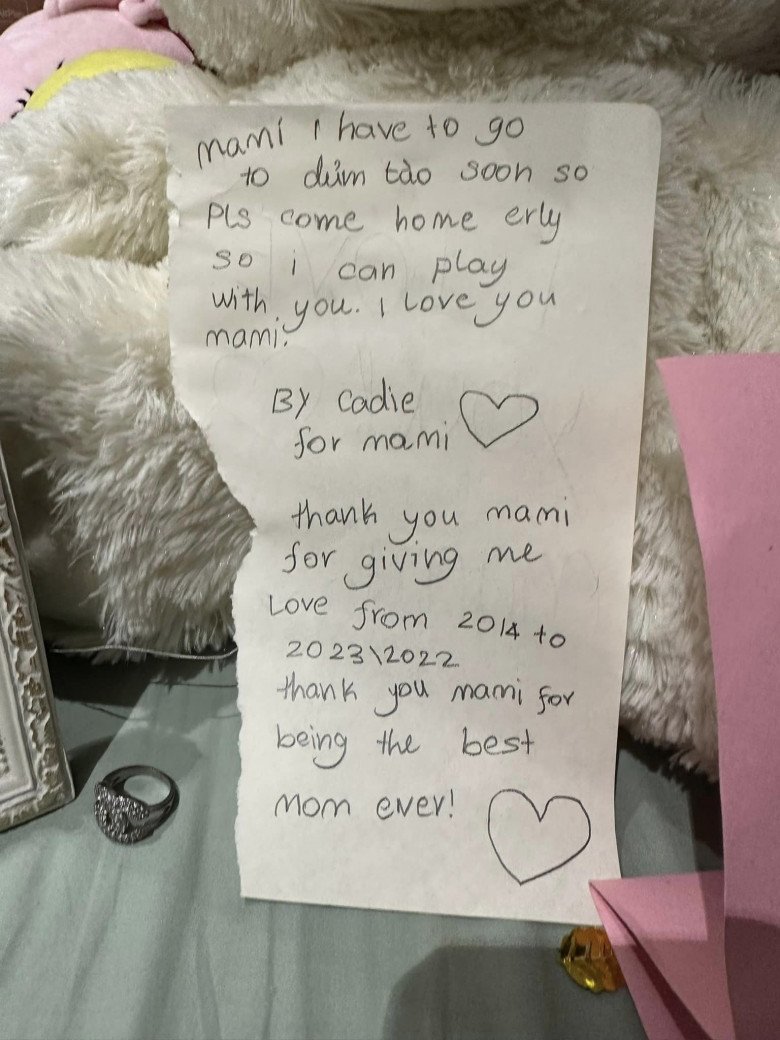 mami I have to go
to dủm tào soon so
Pls come home erly
so i can play
with you. I Love you
mami.
By Cadie
for mami
thank you mami
for giving me
Love from 2014 to
2023\2022
thank you mami for
being the best
mom ever!